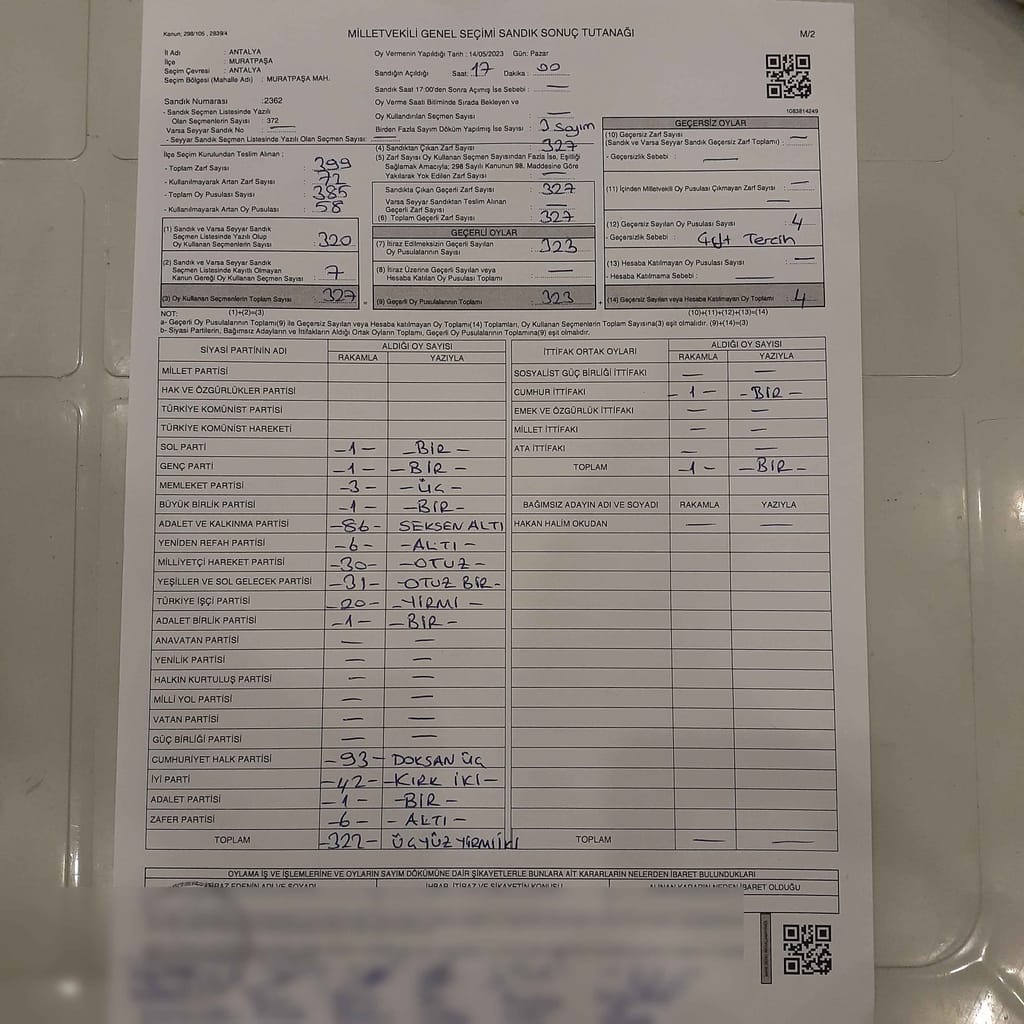 Kanun: 298/105 , 2839/4
MİLLETVEKİLİ GENEL SEÇİMİ SANDIK SONUÇ TUTANAĞI
M/2
İl Adı : ANTALYA
İlçe : MURATPAŞA
Seçim Çevresi : ANTALYA
Seçim Bölgesi (Mahalle Adı) : MURATPAŞA MAH.
Sandık Numarası :2362
- Sandık Seçmen Listesinde Yazılı
Olan Seçmenlerin Sayısı : 372
Varsa Seyyar Sandık No : —
- Seyyar Sandık Seçmen Listesinde Yazılı Olan Seçmen Sayısı: —
İlçe Seçim Kurulundan Teslim Alınan ;
- Toplam Zarf Sayısı : 399
- Kullanılmayarak Artan Zarf Sayısı : 72
- Toplam Oy Pusulası Sayısı : 385
- Kullanılmayarak Artan Oy Pusulası : 58
(1) Sandık ve Varsa Seyyar Sandık
Seçmen Listesinde Yazılı Olup
Oy Kullanan Seçmenlerin Sayısı : 320
(2) Sandık ve Varsa Seyyar Sandık
Seçmen Listesinde Kayıtlı Olmayan
Kanun Gereği Oy Kullanan Seçmen Sayısı : 7
(3) Oy Kullanan Seçmenlerin Toplam Sayısı : 327
(1)+(2)=(3)
Oy Vermenin Yapıldığı Tarih : 14/05/2023 Gün: Pazar
Sandığın Açıldığı Saat: 17 Dakika : 00
Sandık Saat 17:00'den Sonra Açılmış İse Sebebi : —
Oy Verme Saati Bitiminde Sırada Bekleyen ve
Oy Kullandırılan Seçmen Sayısı : —
Birden Fazla Sayım Döküm Yapılmış İse Sayısı : 3 Sayım
(4) Sandıktan Çıkan Zarf Sayısı : 327
(5) Zarf Sayısı Oy Kullanan Seçmen Sayısından Fazla İse, Eşitliği
Sağlamak Amacıyla; 298 Sayılı Kanunun 98. Maddesine Göre
Yakılarak Yok Edilen Zarf Sayısı : —
Sandıkta Çıkan Geçerli Zarf Sayısı : 327
Varsa Seyyar Sandıktan Teslim Alınan
Geçerli Zarf Sayısı : —
(6) Toplam Geçerli Zarf Sayısı : 327
GEÇERLİ OYLAR
(7) İtiraz Edilmeksizin Geçerli Sayılan
Oy Pusulalarının Sayısı : 323
(8) İtiraz Üzerine Geçerli Sayılan veya
Hesaba Katılan Oy Pusulası Sayısı : —
(9) Geçerli Oy Pusulalarının Toplamı : 323
1083814249
GEÇERSİZ OYLAR
(10) Geçersiz Zarf Sayısı
(Sandık ve Varsa Seyyar Sandık Geçersiz Zarf Toplamı) : —
- Geçersizlik Sebebi : —
(11) İçinden Milletvekili Oy Pusulası Çıkmayan Zarf Sayısı : —
—
(12) Geçersiz Sayılan Oy Pusulası Sayısı : 4
- Geçersizlik Sebebi : Çift Tercih
(13) Hesaba Katılmayan Oy Pusulası Sayısı : —
- Hesaba Katılmama Sebebi : —
(14) Geçersiz Sayılan veya Hesaba Katılmayan Oy Toplamı : 4
(10)+(11)+(12)+(13)=(14)
NOT:
a- Geçerli Oy Pusulalarının Toplamı(9) ile Geçersiz Sayılan veya Hesaba Katılmayan Oy Toplamı(14) Toplamları, Oy Kullanan Seçmenlerin Toplam Sayısına(3) eşit olmalıdır. (9)+(14)=(3)
b- Siyasi Partilerin, Bağımsız Adayların ve İttifakların Aldığı Ortak Oyların Toplamı, Geçerli Oy Pusulalarının Toplamına(9) eşit olmalıdır.
SİYASİ PARTİNİN ADI ALDIĞI OY SAYISI
RAKAMLA YAZIYLA
MİLLET PARTİSİ
HAK VE ÖZGÜRLÜKLER PARTİSİ
TÜRKİYE KOMÜNİST PARTİSİ
TÜRKİYE KOMÜNİST HAREKETİ
SOL PARTİ -1- -BİR-
GENÇ PARTİ -1- -BİR-
MEMLEKET PARTİSİ -3- -ÜÇ-
BÜYÜK BİRLİK PARTİSİ -1- -BİR-
ADALET VE KALKINMA PARTİSİ -86- SEKSEN ALTI
YENİDEN REFAH PARTİSİ -6- -ALTI-
MİLLİYETÇİ HAREKET PARTİSİ -30- -OTUZ-
YEŞİLLER VE SOL GELECEK PARTİSİ -31- -OTUZ BİR-
TÜRKİYE İŞÇİ PARTİSİ -20- -YİRMİ-
ADALET BİRLİK PARTİSİ -1- -BİR-
ANAVATAN PARTİSİ — —
YENİLİK PARTİSİ — —
HALKIN KURTULUŞ PARTİSİ — —
MİLLİ YOL PARTİSİ — —
VATAN PARTİSİ — —
GÜÇ BİRLİĞİ PARTİSİ — —
CUMHURİYET HALK PARTİSİ -93- DOKSAN ÜÇ
İYİ PARTİ -42- -KIRK İKİ-
ADALET PARTİSİ -1- -BİR-
ZAFER PARTİSİ -6- -ALTI-
TOPLAM -322- ÜÇYÜZ YİRMİİKİ
İTTİFAK ORTAK OYLARI ALDIĞI OY SAYISI
RAKAMLA YAZIYLA
SOSYALİST GÜÇ BİRLİĞİ İTTİFAKI — —
CUMHUR İTTİFAKI -1- -BİR-
EMEK VE ÖZGÜRLÜK İTTİFAKI — —
MİLLET İTTİFAKI — —
ATA İTTİFAKI — —
TOPLAM -1- -BİR-
BAĞIMSIZ ADAYIN ADI VE SOYADI RAKAMLA YAZIYLA
HAKAN HALİM OKUDAN — —
TOPLAM — —
OYLAMA İŞ VE İŞLEMLERİNE VE OYLARIN SAYIM DÖKÜMÜNE DAİR ŞİKAYETLERLE BUNLARA AİT KARARLARIN NELERDEN İBARET BULUNDUKLARI
İTİRAZ EDENİN ADI VE SOYADI İHBAR, İTİRAZ VE ŞİKAYETİN KONUSU ALINAN KARARIN NEDEN İBARET OLDUĞU